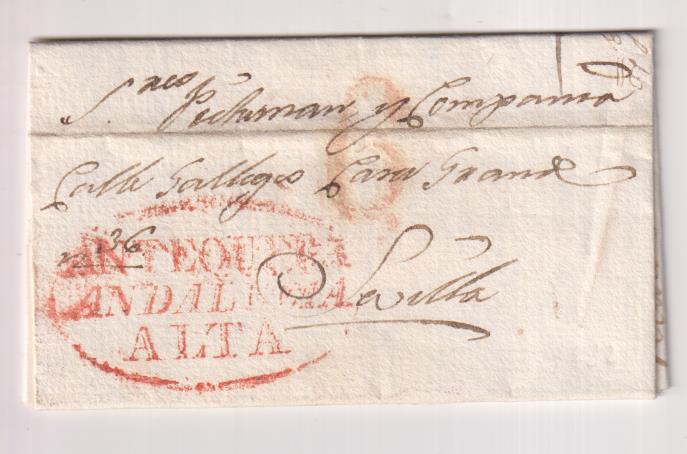 S.res Pickman y Compania
8
Calle Gallegos Casa Grande
n.º 36
Sevilla
ANTEQUERA
ANDALUCIA
ALTA